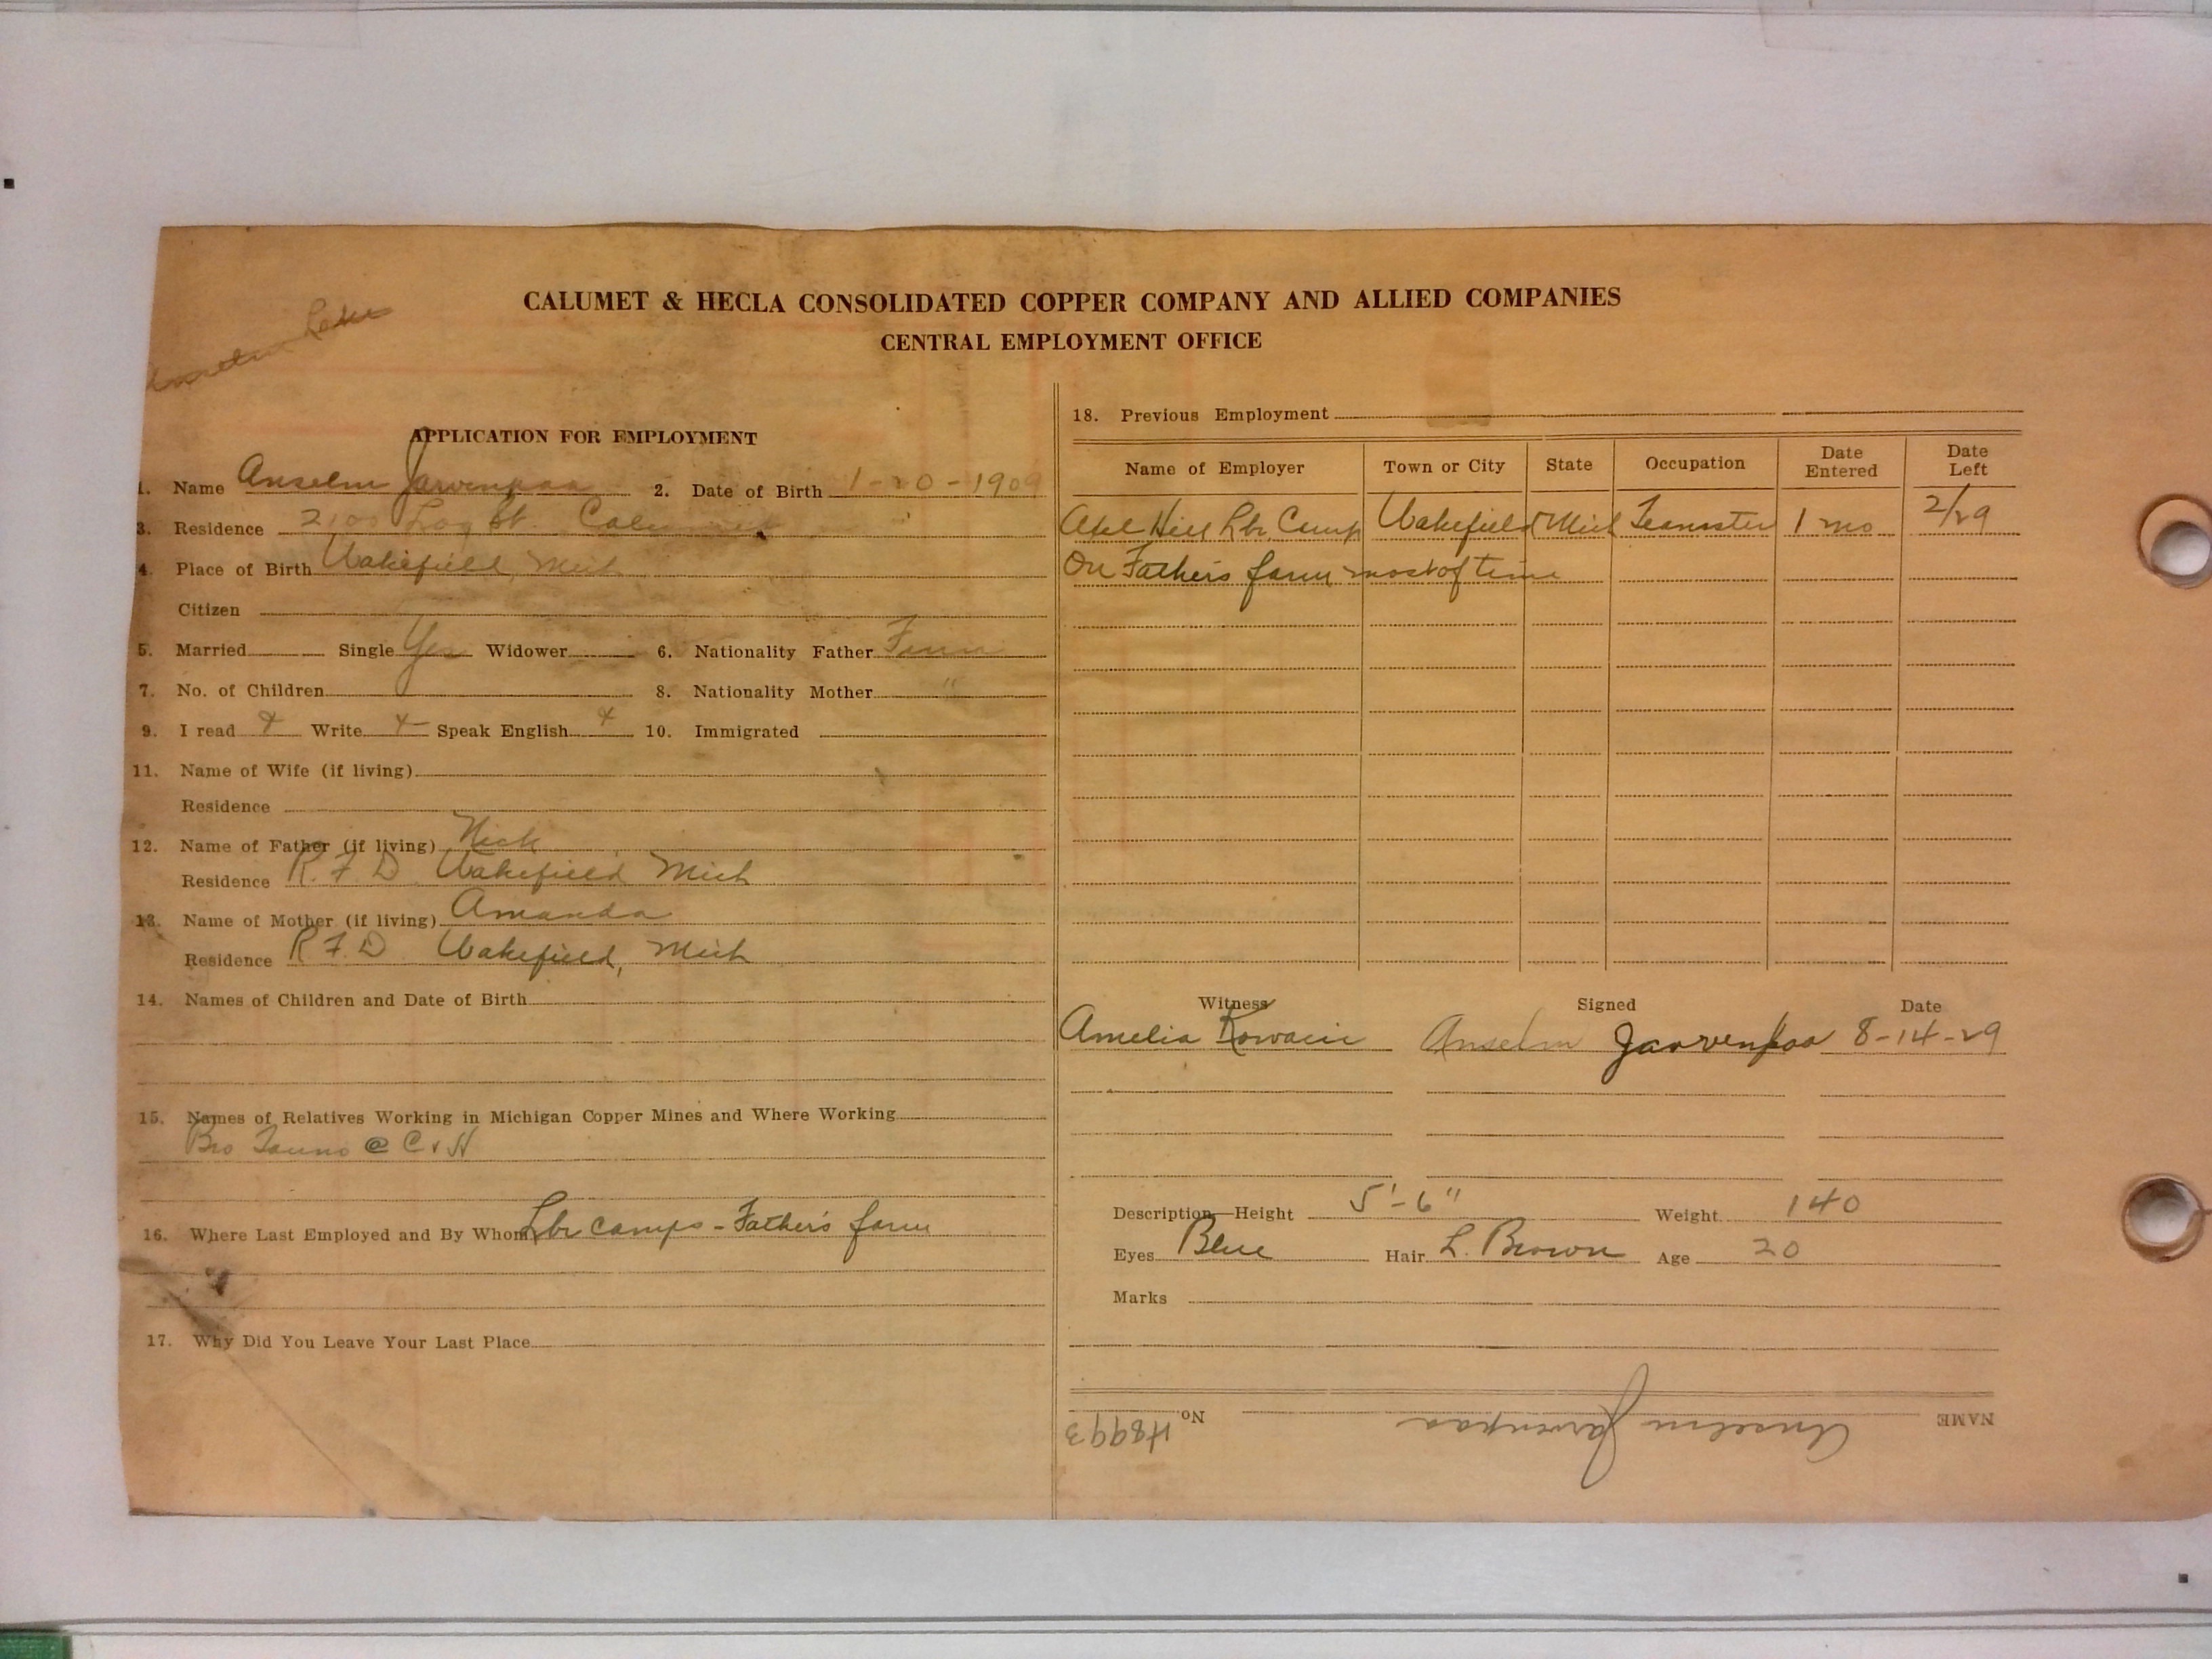 Lake
CALUMET & HECLA CONSOLIDATED COPPER COMPANY AND ALLIED COMPANIES
CENTRAL EMPLOYMENT OFFICE
APPLICATION FOR EMPLOYMENT
1. Name Anselm Jarvenpaa 2. Date of Birth 1-20-1909
3. Residence 2100 Log St. Calumet
4. Place of Birth Wakefield, Mich
Citizen
5. Married Single Yes Widower 6. Nationality Father Finn
7. No. of Children 8. Nationality Mother "
9. I read x Write x Speak English x 10. Immigrated
11. Name of Wife (if living)
Residence
12. Name of Father (if living) Nick
Residence R. F. D Wakefield Mich
13. Name of Mother (if living) Amanda
Residence R F. D Wakefield, Mich
14. Names of Children and Date of Birth
15. Names of Relatives Working in Michigan Copper Mines and Where Working
Bro Tauno @ C & H
16. Where Last Employed and By Whom Lbr camps - Father's farm
17. Why Did You Leave Your Last Place
18. Previous Employment
Name of Employer Town or City State Occupation Date Entered Date Left
Axel Hill Lbr. Camp Wakefield Mich Teamster 1 mo 2/29
On Father's farm most of time
Witness Signed Date
Amelia Anselm Jarvenpaa 8-14-29
Description—Height 5'-6" Weight 140
Eyes Blue Hair L. Brown Age 20
Marks
NAME Anselm Jarvenpaa No. H8993